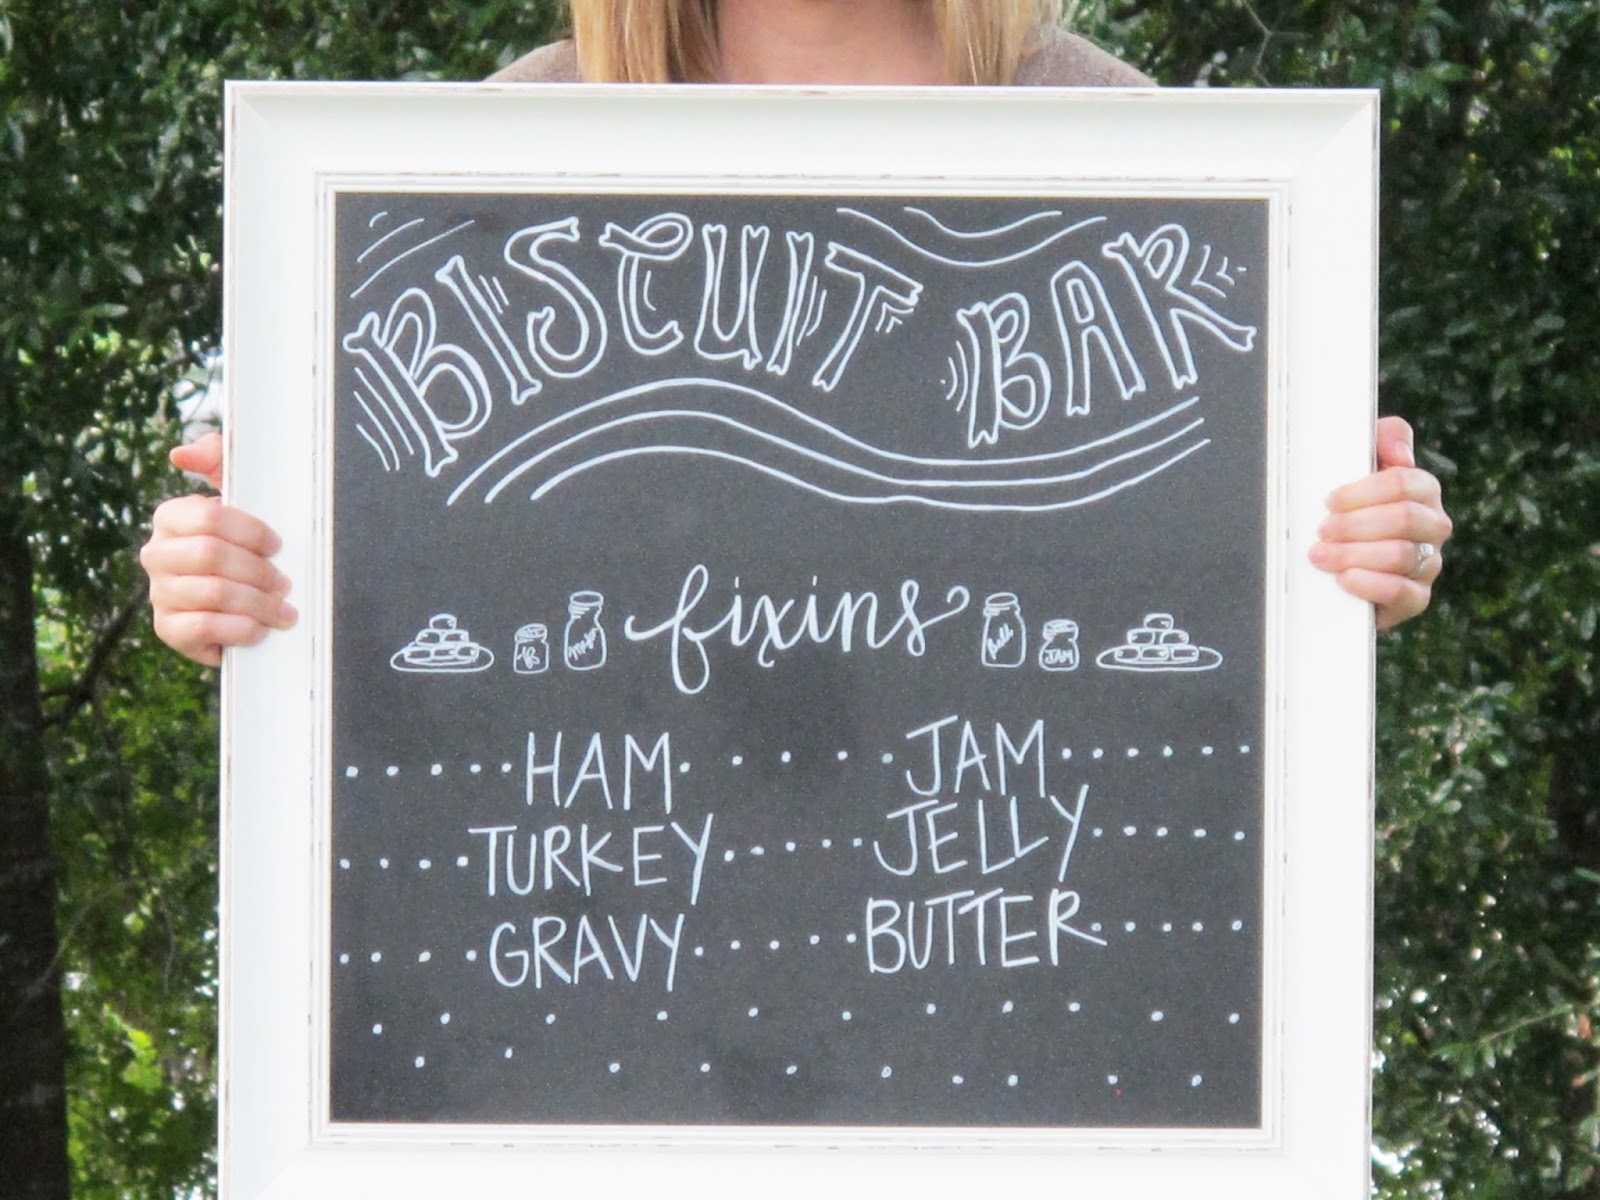 BISCUIT BAR
Mason fixins Ball
JAM
HAM JAM
TURKEY JELLY
GRAVY BUTTER